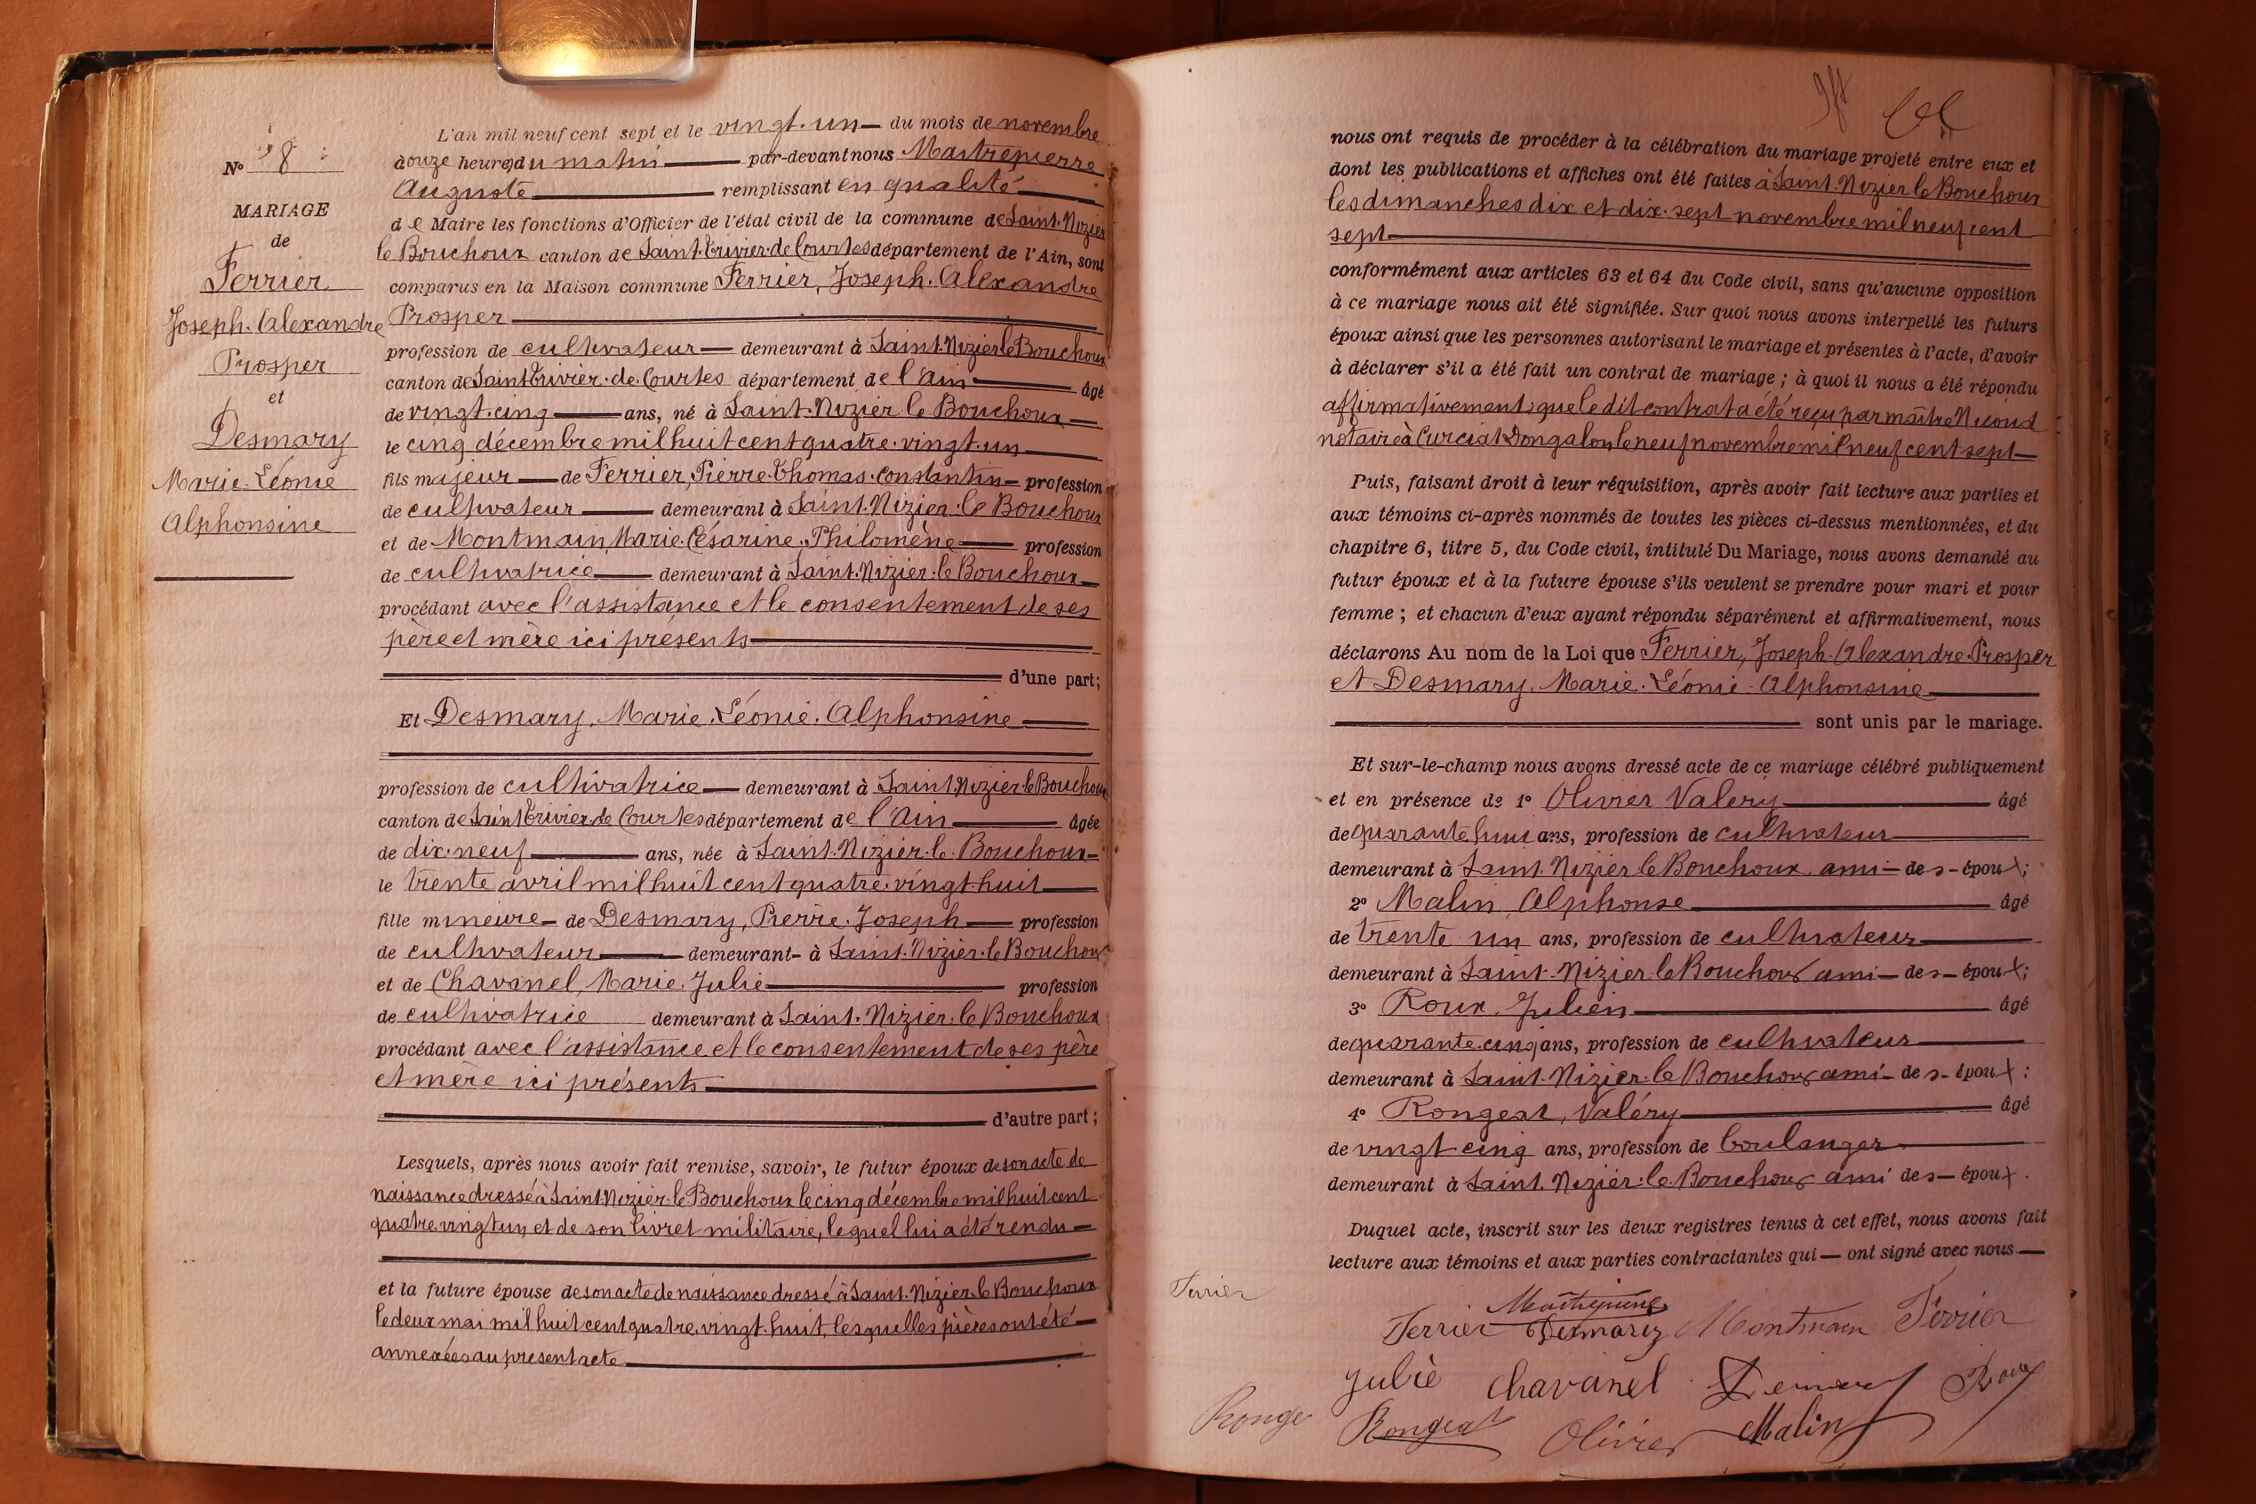 L'an mil neuf cent sept et le vingt-un du mois de novembre
à onze heures du matin par-devant nous Maitrepierre
Auguste remplissant en qualité
de Maire les fonctions d'Officier de l'état civil de la commune de Saint-Nizier
le Bouchoux canton de Saint-Trivier-de-Courtes département de l'Ain, sont
comparus en la Maison commune Ferrier, Joseph-Alexandre
Prosper
profession de cultivateur demeurant à Saint-Nizier le Bouchoux
canton de Saint Trivier-de-Courtes département de l'Ain âgé
de vingt-cinq ans, né à Saint-Nizier le Bouchoux
le cinq décembre mil huit cent quatre-vingt-un
fils majeur de Ferrier, Pierre-Thomas-Constantin profession
de cultivateur demeurant à Saint-Nizier-le Bouchoux
et de Montmain, Marie-Césarine-Philomène profession
de cultivatrice demeurant à Saint-Nizier-le Bouchoux
procédant avec l'assistance et le consentement de ses
père et mère ici présents
d'une part;
Et Desmary, Marie-Léonie-Alphonsine
profession de cultivatrice demeurant à Saint-Nizier-le Bouchoux
canton de Saint Trivier-de Courtes département de l'Ain âgée
de dix-neuf ans, née à Saint-Nizier-le-Bouchoux
le trente avril mil huit cent quatre-vingt-huit
fille mineure de Desmary, Pierre-Joseph profession
de cultivateur demeurant à Saint-Nizier-le Bouchoux
et de Chavanel, Marie-Julie profession
de cultivatrice demeurant à Saint-Nizier-le Bouchoux
procédant avec l'assistance et le consentement de ses père
et mère ici présents
d'autre part;
Lesquels, après nous avoir fait remise, savoir, le futur époux de son acte de
naissance dressé à Saint-Nizier-le Bouchoux le cinq décembre mil huit cent
quatre vingt un, et de son livret militaire, lequel lui a été rendu
et la future épouse de son acte de naissance dressé à Saint-Nizier-le Bouchoux
le deux mai mil huit cent quatre-vingt-huit, lesquelles pièces ont été
annexées au présent acte
N° 8
MARIAGE
de
Ferrier
Joseph-Alexandre
Prosper
et
Desmary
Marie-Léonie
Alphonsine
nous ont requis de procéder à la célébration du mariage projeté entre eux et
dont les publications et affiches ont été faites à Saint-Nizier le Bouchoux
les dimanches dix et dix-sept novembre mil neuf cent
sept
conformément aux articles 63 et 64 du Code civil, sans qu'aucune opposition
à ce mariage nous ait été signifiée. Sur quoi nous avons interpellé les futurs
époux ainsi que les personnes autorisant le mariage et présentes à l'acte, d'avoir
à déclarer s'il a été fait un contrat de mariage; à quoi il nous a été répondu
affirmativement, que le dit contrat a été reçu par maître
notaire à Curciat Dongalon le neuf novembre mil neuf cent sept
Puis, faisant droit à leur réquisition, après avoir fait lecture aux parties et
aux témoins ci-après nommés de toutes les pièces ci-dessus mentionnées, et du
chapitre 6, titre 5, du Code civil, intitulé Du Mariage, nous avons demandé au
futur époux et à la future épouse s'ils veulent se prendre pour mari et pour
femme; et chacun d'eux ayant répondu séparément et affirmativement, nous
déclarons Au nom de la Loi que Ferrier, Joseph-Alexandre-Prosper
et Desmary, Marie-Léonie-Alphonsine
sont unis par le mariage.
Et sur-le-champ nous avons dressé acte de ce mariage célébré publiquement
et en présence de 1° Olivier Valery âgé
de quarante huit ans, profession de cultivateur
demeurant à Saint-Nizier le Bouchoux ami des époux;
2° Malin, Alphonse âgé
de trente un ans, profession de cultivateur
demeurant à Saint-Nizier-le Bouchoux ami des époux;
3° Roux, Julien âgé
de quarante-cinq ans, profession de cultivateur
demeurant à Saint-Nizier-le Bouchoux ami des époux;
4° Rongeat, Valéry âgé
de vingt cinq ans, profession de boulanger
demeurant à Saint-Nizier-le-Bouchoux ami des époux.
Duquel acte, inscrit sur les deux registres tenus à cet effet, nous avons fait
lecture aux témoins et aux parties contractantes qui ont signé avec nous
Maitrepierre
Ferrier
Ferrier Desmary Montmain Ferrier
Julie Chavanel Roux
Ronge Rongeat Olivier Malin